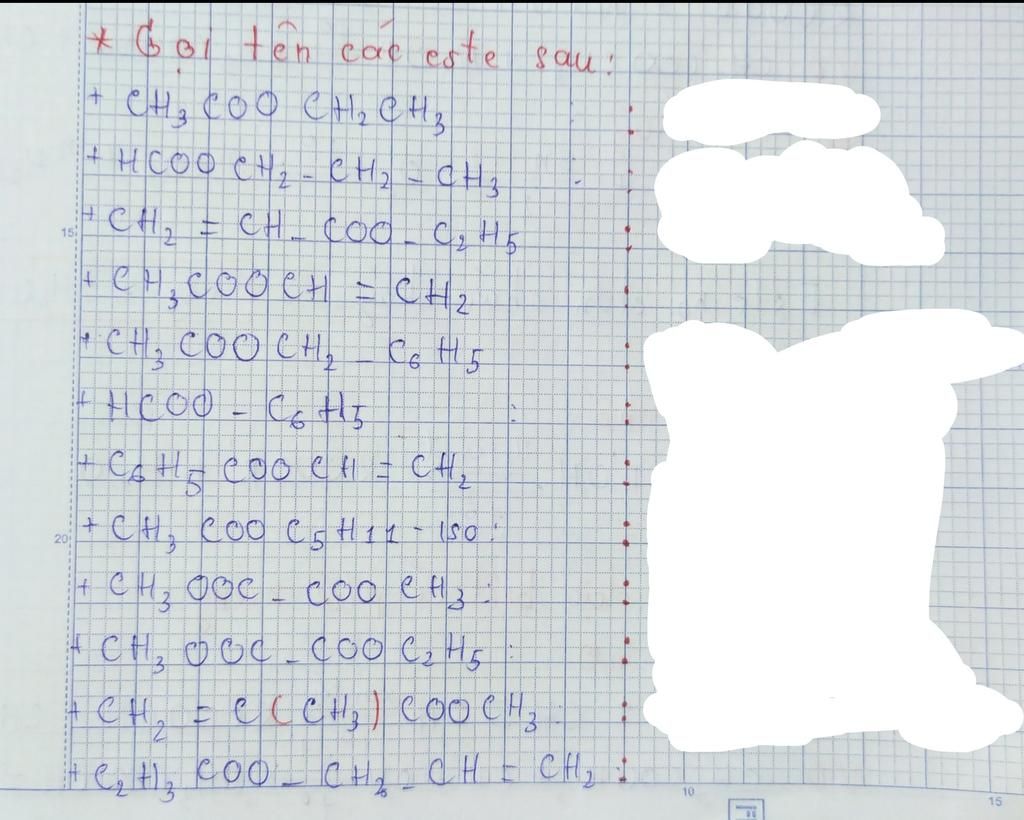 * Gọi tên các este sau:
+ CH₃COOCH₂CH₃ :
+ HCOOCH₂-CH₂-CH₃ :
15 + CH₂=CH-COO-C₂H₅ :
+ CH₃COOCH=CH₂ :
+ CH₃COOCH₂-C₆H₅ :
+ HCOO-C₆H₅ :
+ C₆H₅COOCH=CH₂ :
20 + CH₃COOC₅H₁₁-iso :
+ CH₃OOC-COOCH₃ :
+ CH₃OOC-COOC₂H₅ :
+ CH₂=C(CH₃)COOCH₃ :
+ C₂H₃COO-CH₂-CH=CH₂ :
10 15